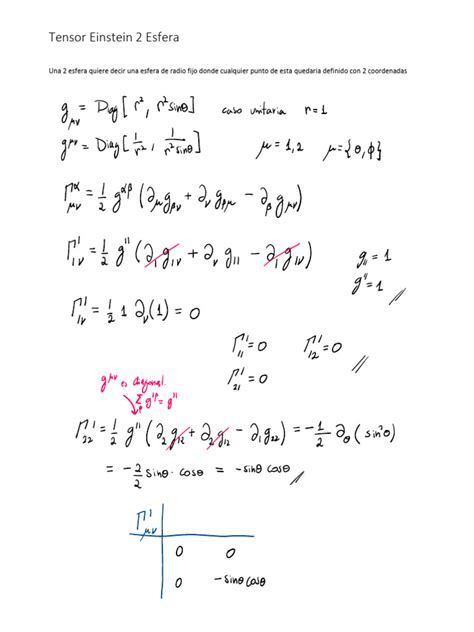 Tensor Einstein 2 Esfera
Una 2 esfera quiere decir una esfera de radio fijo donde cualquier punto de esta quedaria definido con 2 coordenadas
g_μν = Diag[r², r²sinθ] caso unitaria r=1
g^μν = Diag[1/r², 1/r²sinθ] μ=1,2 μ={θ,ϕ}
Γ^α_μν = 1/2 g^αβ (∂_μ g_βν + ∂_ν g_βμ − ∂_β g_μν)
Γ^1_1ν = 1/2 g^11 (∂_1 g_1ν + ∂_ν g_11 − ∂_1 g_1ν) g_11 = 1
g^11 = 1 //
Γ^1_1ν = 1/2 1 ∂_ν(1) = 0
Γ^1_11 = 0 Γ^1_12 = 0
Γ^1_21 = 0 //
g^μν es diagonal.
Σ_β g^1β = g^11
Γ^1_22 = 1/2 g^11 (∂_2 g_12 + ∂_2 g_12 − ∂_1 g_22) = −1/2 ∂_θ (sin²θ)
= −2/2 sinθ · cosθ = −sinθ cosθ //
Γ^1_μν
0 0
0 −sinθ cosθ